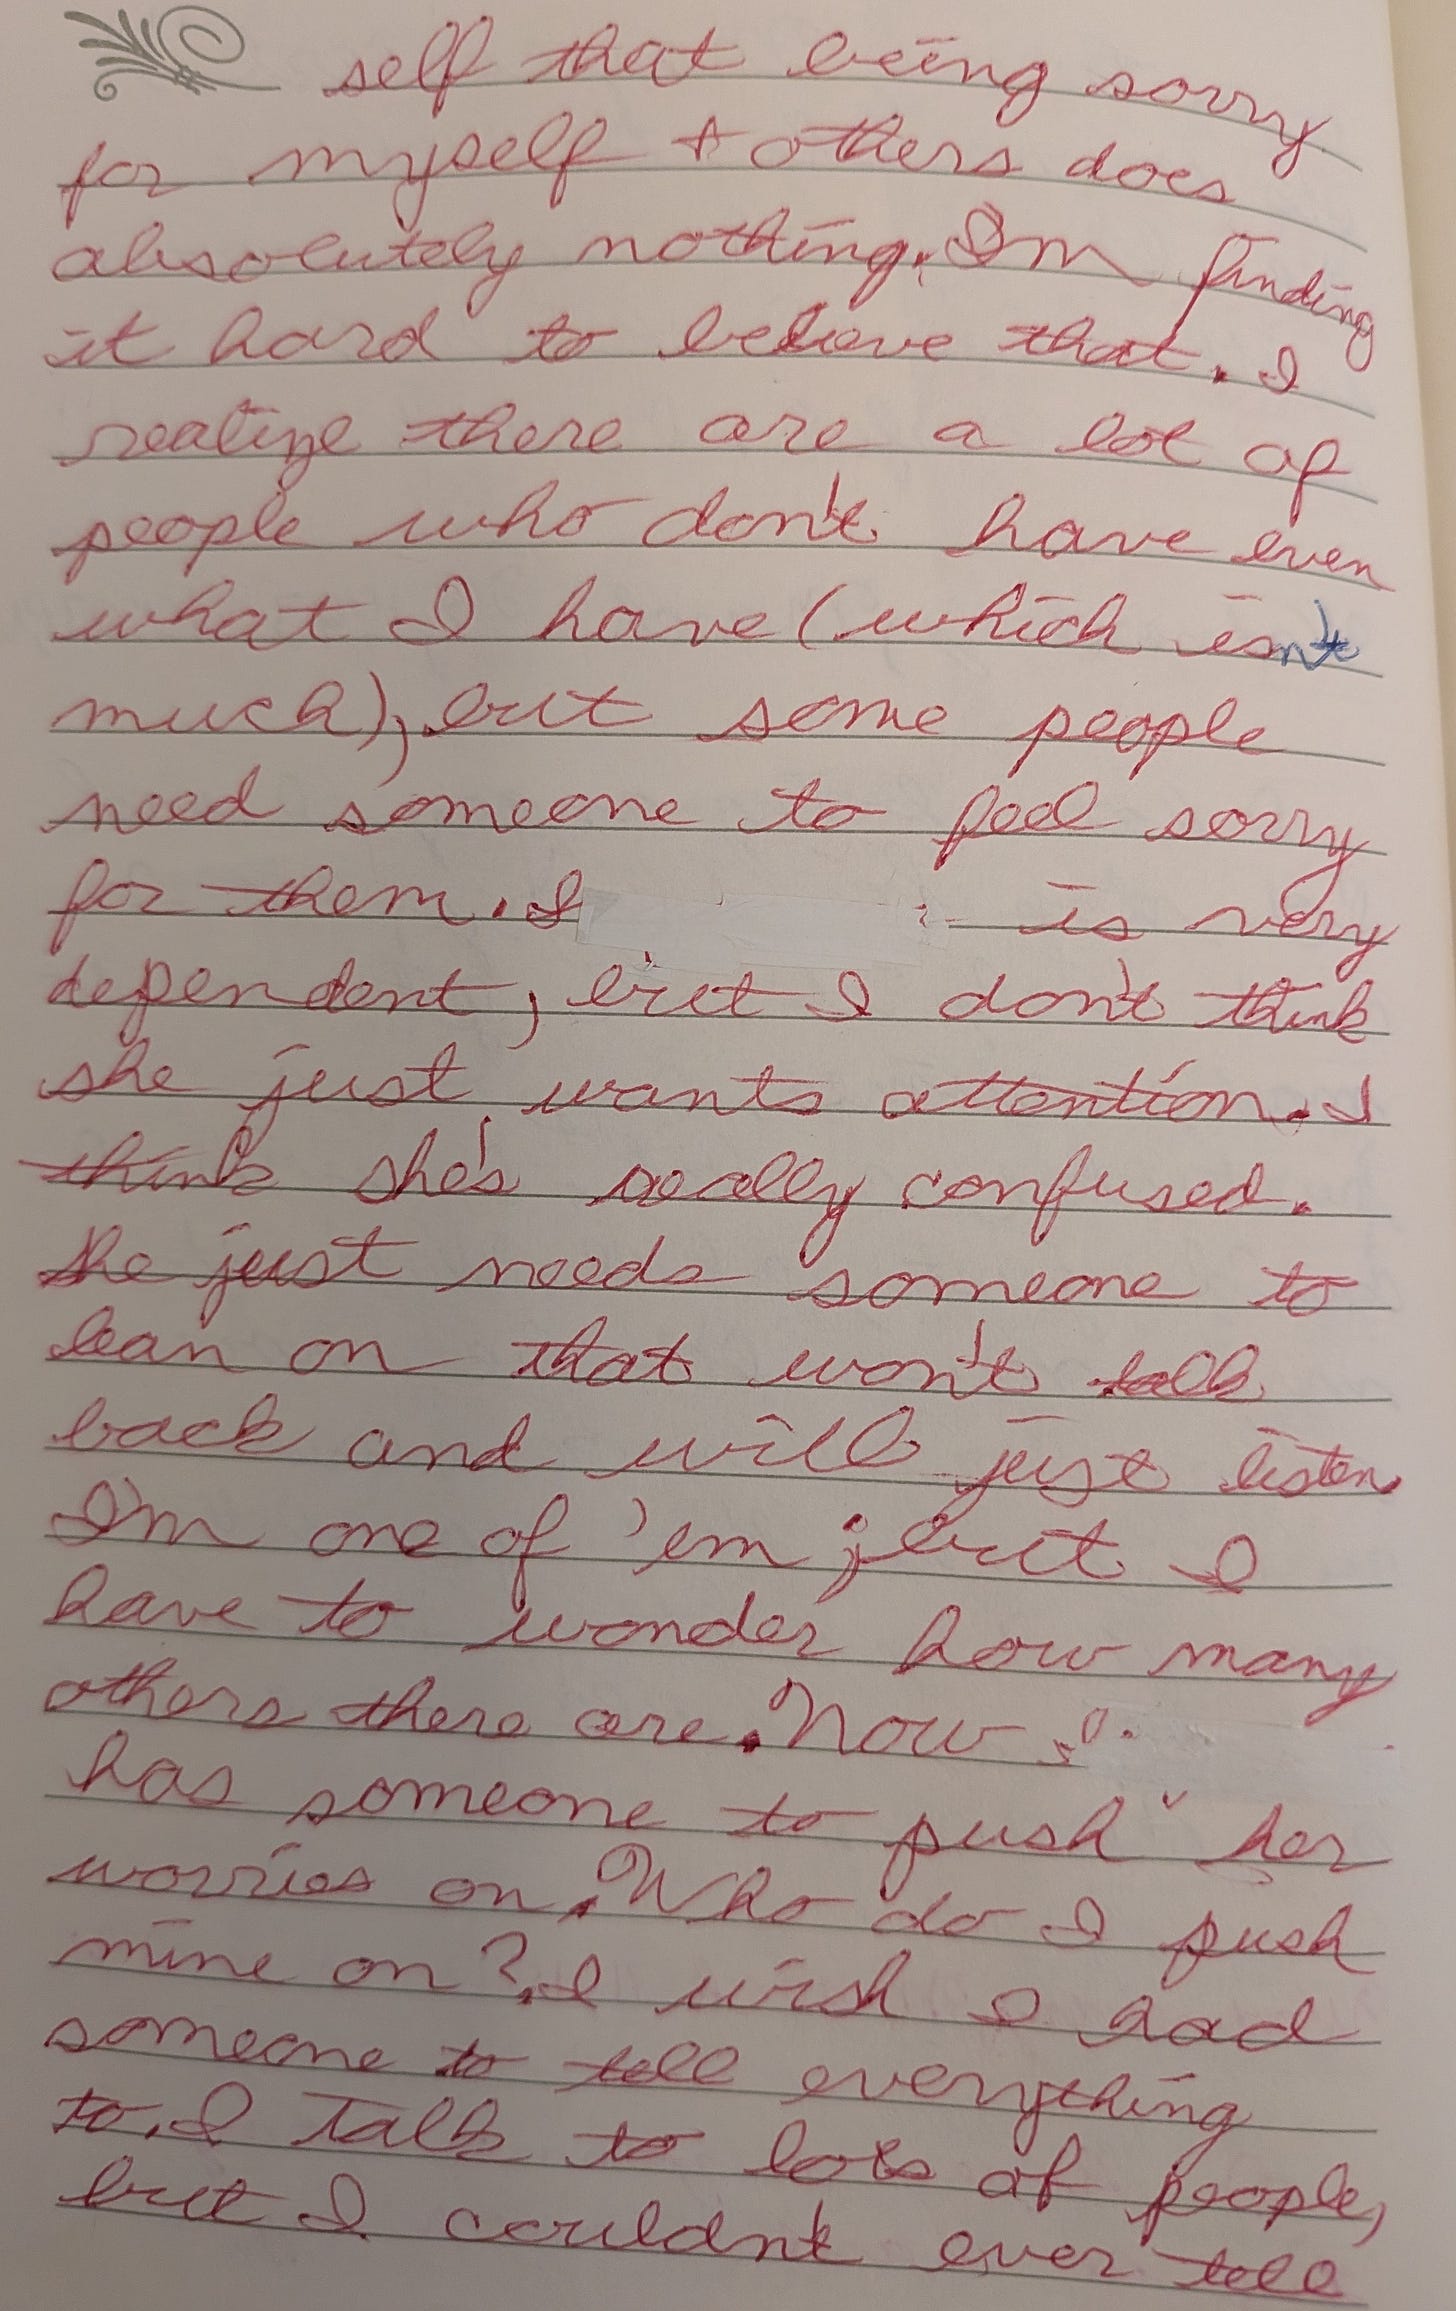 self that being sorry
for myself + others does
absolutely nothing. I'm finding
it hard to believe that. I
realize there are a lot of
people who don't have even
what I have (which isn't
much), but some people
need someone to feel sorry
for them. I is very
dependent, but I don't think
she just wants attention. I
think she's really confused.
She just needs someone to
lean on that won't talk
back and will just listen.
I'm one of 'em; but I
have to wonder how many
others there are. Now
has someone to push her
worries on. Who do I push
mine on? I wish I had
someone to tell everything
to. I talk to lots of people,
but I couldn't ever tell